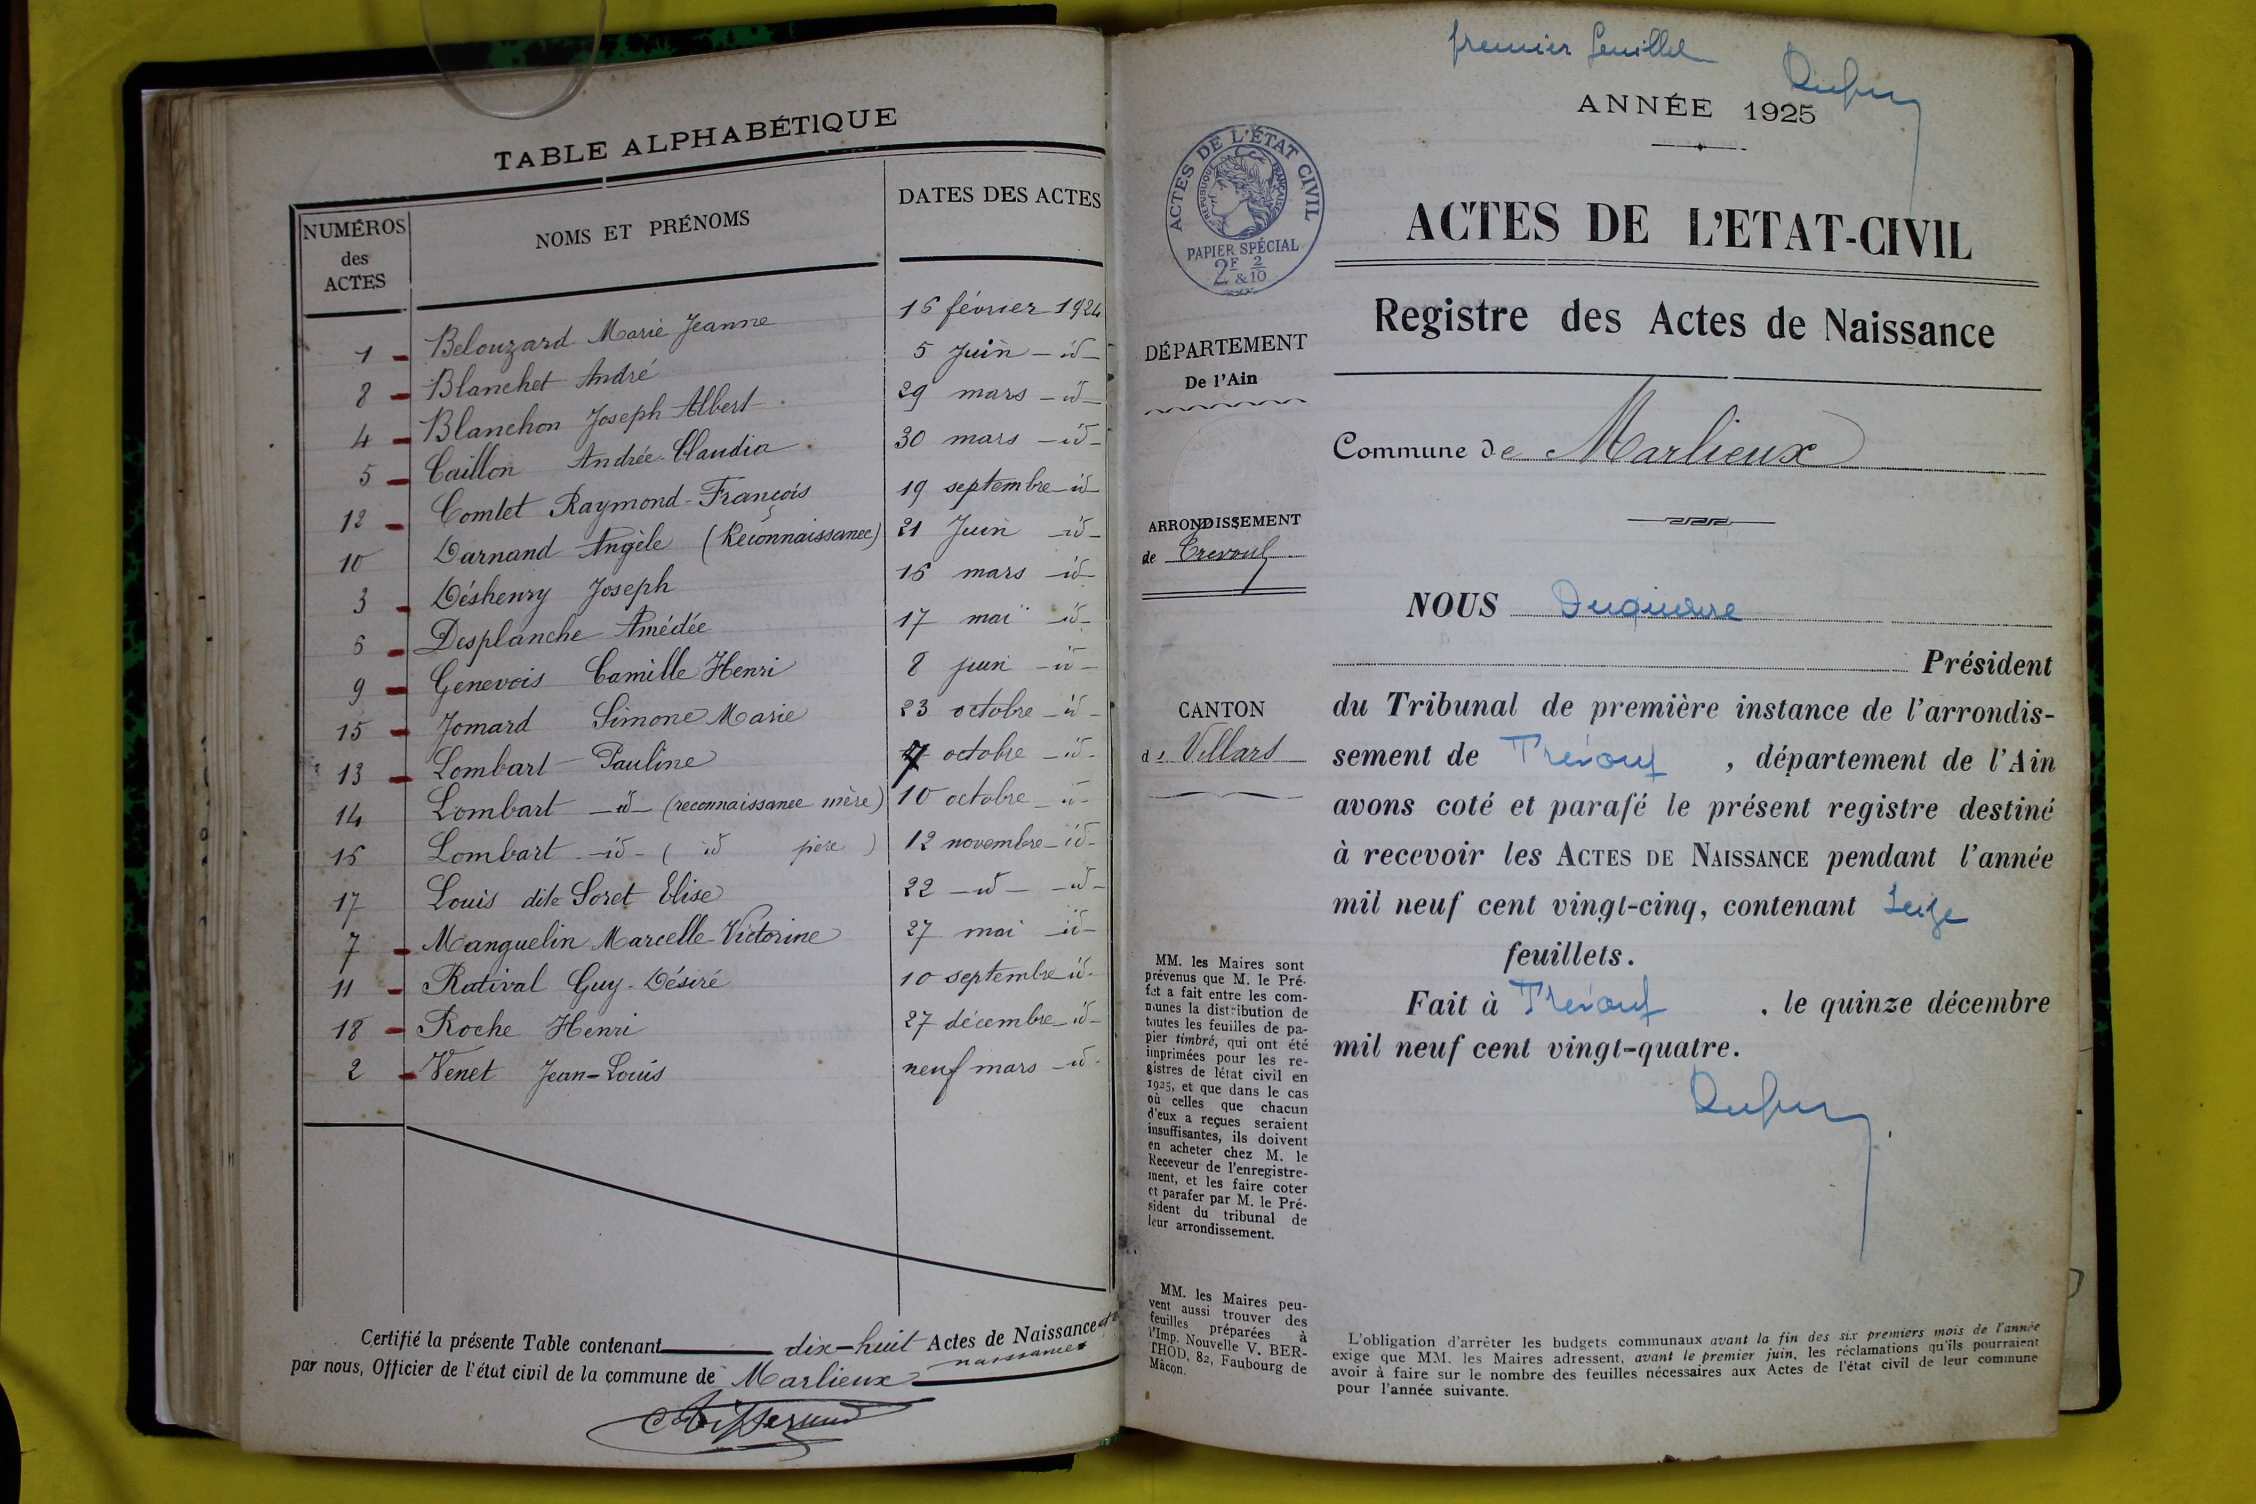 TABLE ALPHABÉTIQUE
NUMÉROS des ACTES
NOMS ET PRÉNOMS
DATES DES ACTES
1 Belouzard Marie Jeanne 16 février 1924
8 Blanchet André 5 Juin -id-
4 Blanchon Joseph Albert 29 mars -id-
5 Caillon Andrée-Claudia 30 mars -id-
12 Comtet Raymond-François 19 septembre -id-
10 Darnand Angèle (Reconnaissance) 21 Juin -id-
3 Déshenry Joseph 16 mars -id-
6 Desplanche Amédée 17 mai -id-
9 Genevois Camille Henri 8 juin -id-
15 Jomard Simone Marie 23 octobre -id-
13 Lombart Pauline 7 octobre -id-
14 Lombart -id- (reconnaissance mère) 10 octobre -id-
16 Lombart -id- ( id père ) 12 novembre -id-
17 Louis dite Soret Elise 22 -id- -id-
7 Manguelin Marcelle-Victorine 27 mai -id-
11 Ratival Guy-Désiré 10 septembre id-
18 Roche Henri 27 décembre -id-
2 Venet Jean-Louis neuf mars -id-
Certifié la présente Table contenant dix-huit Actes de Naissance
naissances
par nous, Officier de l'état civil de la commune de Marlieux
premier feuillet
ANNÉE 1925
ACTES DE L'ÉTAT CIVIL
RÉPUBLIQUE FRANÇAISE
PAPIER SPÉCIAL
2F & 2/10
ACTES DE L'ETAT-CIVIL
Registre des Actes de Naissance
DÉPARTEMENT
De l'Ain
Commune de Marlieux
ARRONDISSEMENT
de Trevoux
CANTON
de Villars
NOUS
Président
du Tribunal de première instance de l'arrondis-
sement de Trévoux , département de l'Ain
avons coté et parafé le présent registre destiné
à recevoir les ACTES DE NAISSANCE pendant l'année
mil neuf cent vingt-cinq, contenant Seize
feuillets.
Fait à Trévoux , le quinze décembre
mil neuf cent vingt-quatre.
MM. les Maires sont
prévenus que M. le Pré-
fet a fait entre les com-
munes la distribution de
toutes les feuilles de pa-
pier timbré, qui ont été
imprimées pour les re-
gistres de létat civil en
1925, et que dans le cas
où celles que chacun
d'eux a reçues seraient
insuffisantes, ils doivent
en acheter chez M. le
Receveur de l'enregistre-
ment, et les faire coter
et parafer par M. le Pré-
sident du tribunal de
leur arrondissement.
MM. les Maires peu-
vent aussi trouver des
feuilles préparées à
l'Imp. Nouvelle V. BER-
THOD, 82, Faubourg de
Mâcon.
L'obligation d'arrêter les budgets communaux avant la fin des six premiers mois de l'année
exige que MM. les Maires adressent, avant le premier juin, les réclamations qu'ils pourraient
avoir à faire sur le nombre des feuilles nécessaires aux Actes de l'état civil de leur commune
pour l'année suivante.